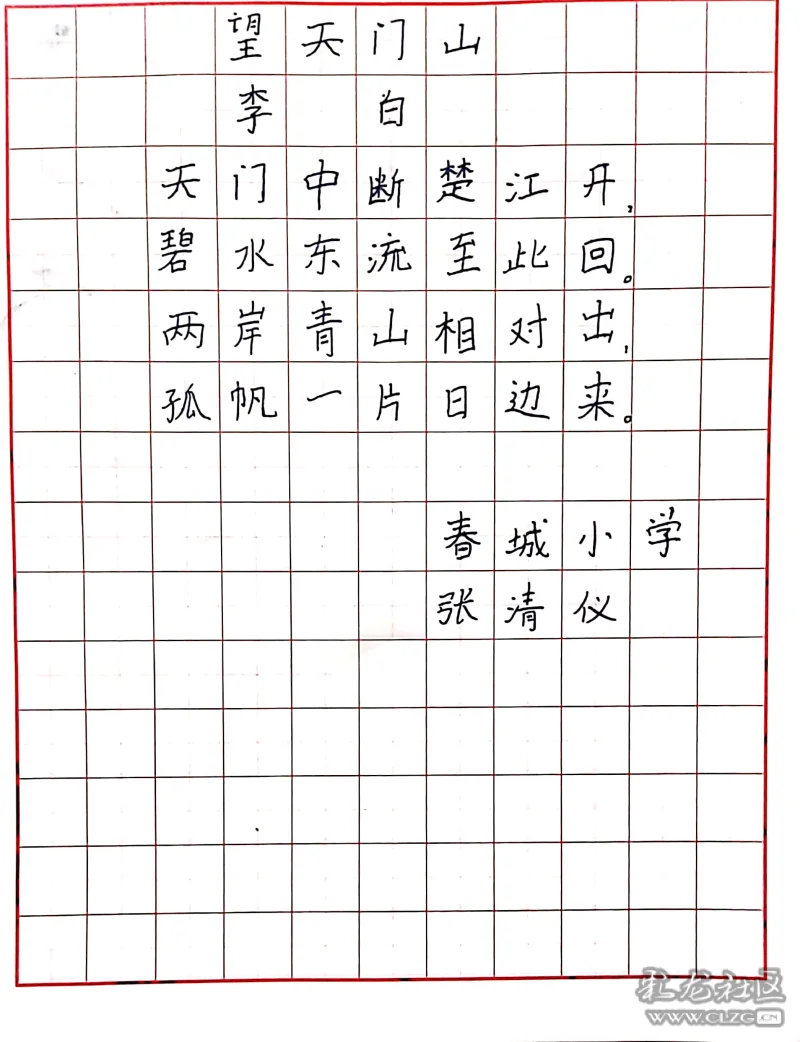 望天门山
李白
天门中断楚江开,
碧水东流至此回。
两岸青山相对出,
孤帆一片日边来。
春城小学
张清仪
彩龙社区
WWW.CLZG.CN